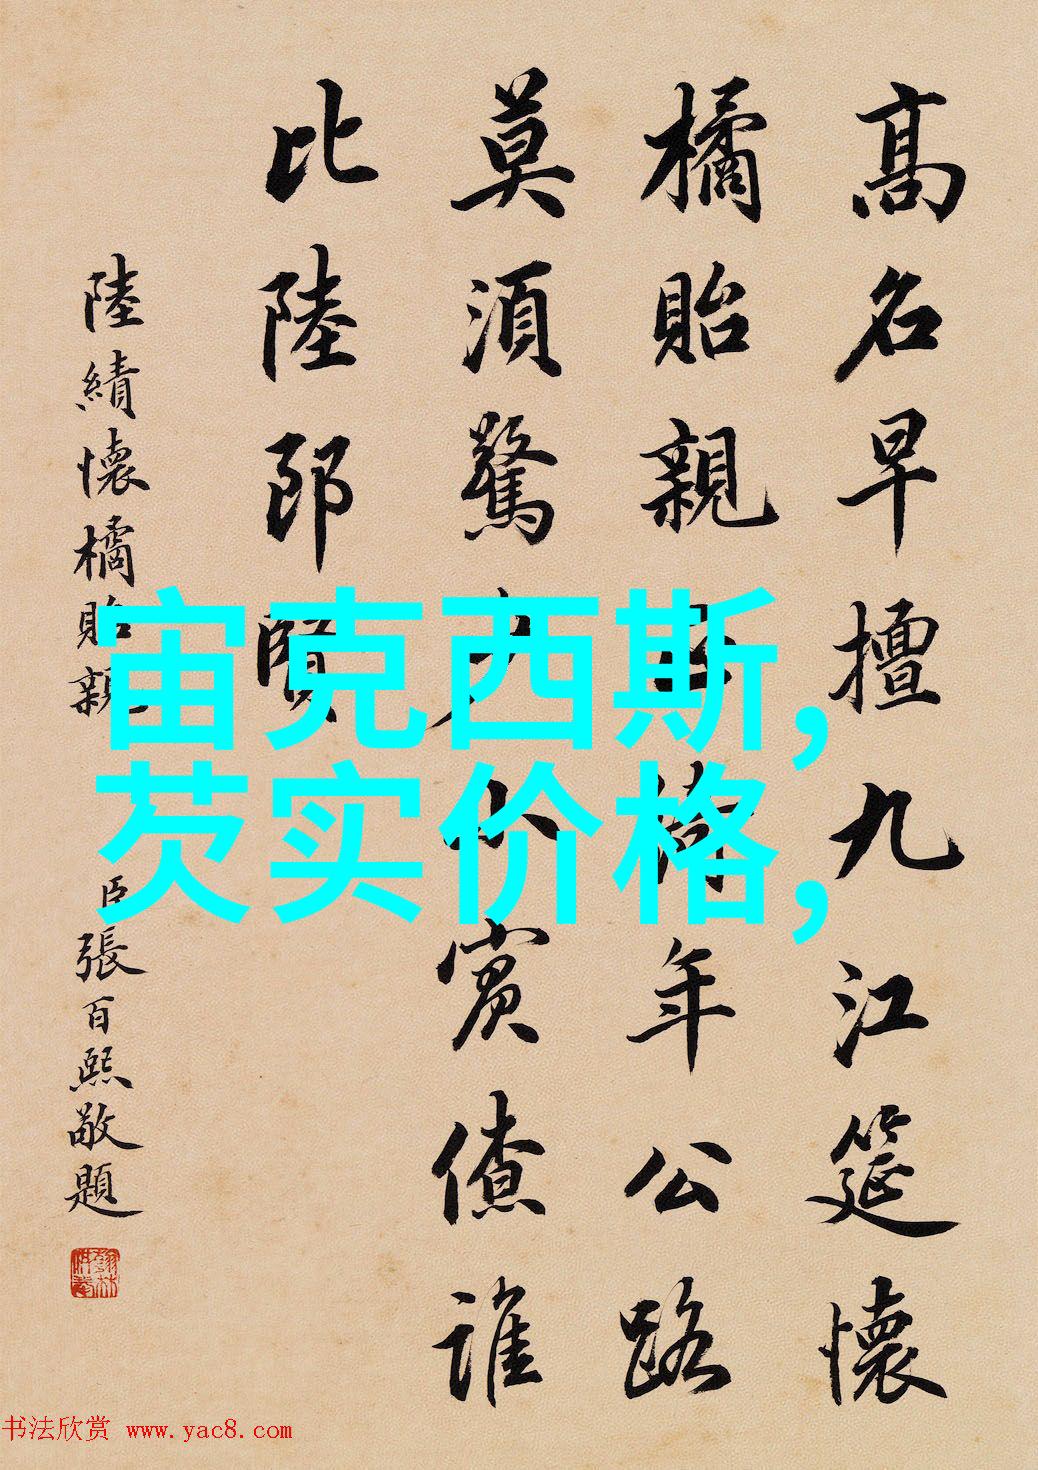 髙名早擅九江筵懷
橘貽親年公路
莫湏驚賓僚誰
比陸郎賢
陸績懷橘貽親
臣張百熙敬題
翰林供奉
宙克西斯,
芡实价格,
书法欣赏 www.yac8.com